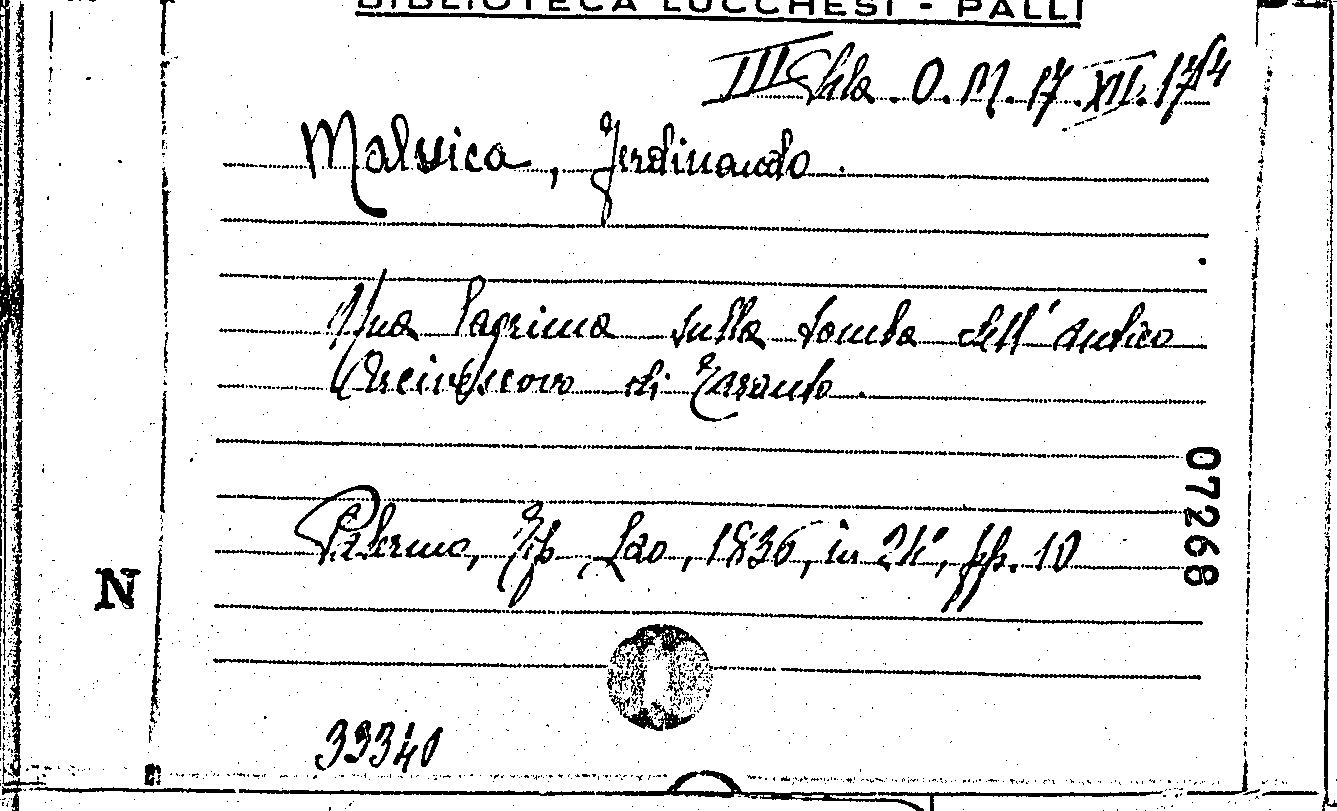 BIBLIOTECA LUCCHESI - PALLI
III Sala . O. M. 17. XII. 17⁽⁴
Malvica, Ferdinando.
Una lagrima sulla tomba dell'antico
Arcivescovo di Taranto.
Palermo, Tip. Lao, 1836, in 24°, pp. 10
07268
N
33340